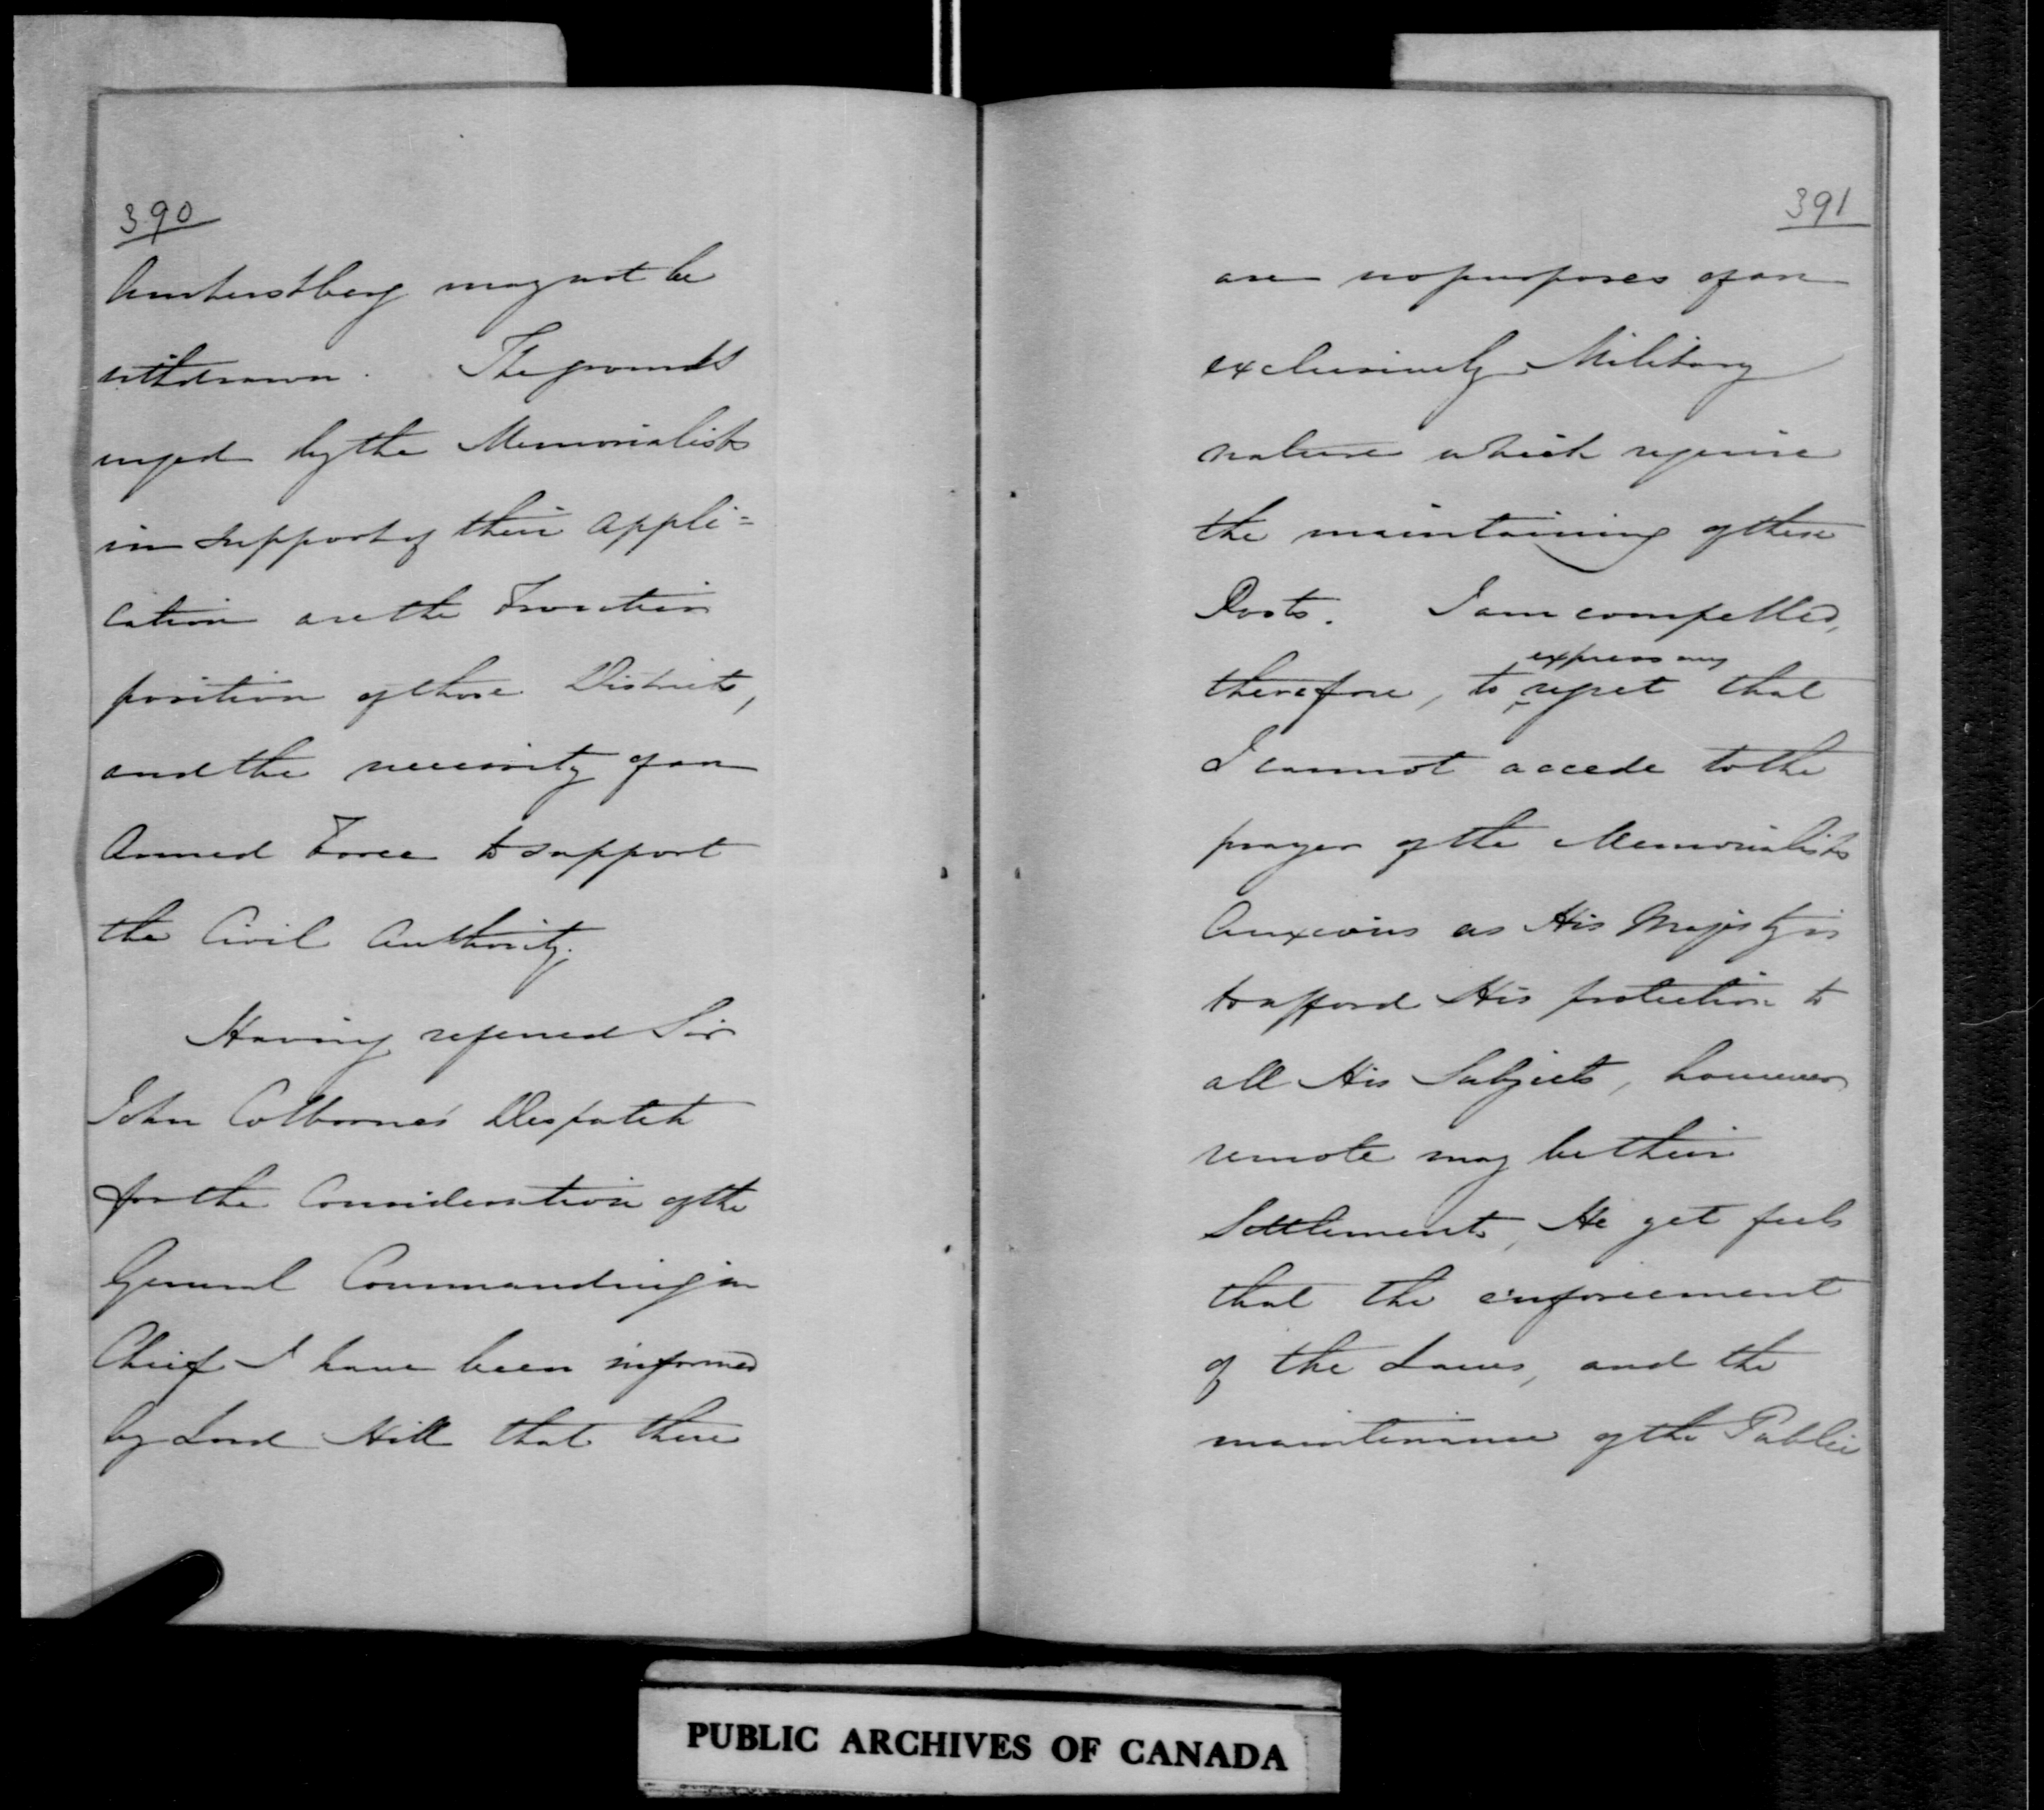 390
Amherstberg may not be
withdrawn. The grounds
urged by the Memorialists
in support of their appli=
cation are the Frontier
position of those Districts,
and the necessity of an
Armed Force to support
the Civil Authority.
Having referred Sir
John Colborne's Despatch
for the Consideration of the
General Commanding in
Chief I have been informed
by Lord Hill that there
391
are no purposes of an
exclusively Military
nature which require
the maintaining of these
Posts. I am compelled,
express my
therefore, to regret that
I cannot accede to the
prayer of the Memorialists
Anxious as His Majesty is
to afford His protection to
all His Subjects, however
remote may be their
Settlements, He yet feels
that the enforcement
of the Laws, and the
maintenance of the Public
PUBLIC ARCHIVES OF CANADA